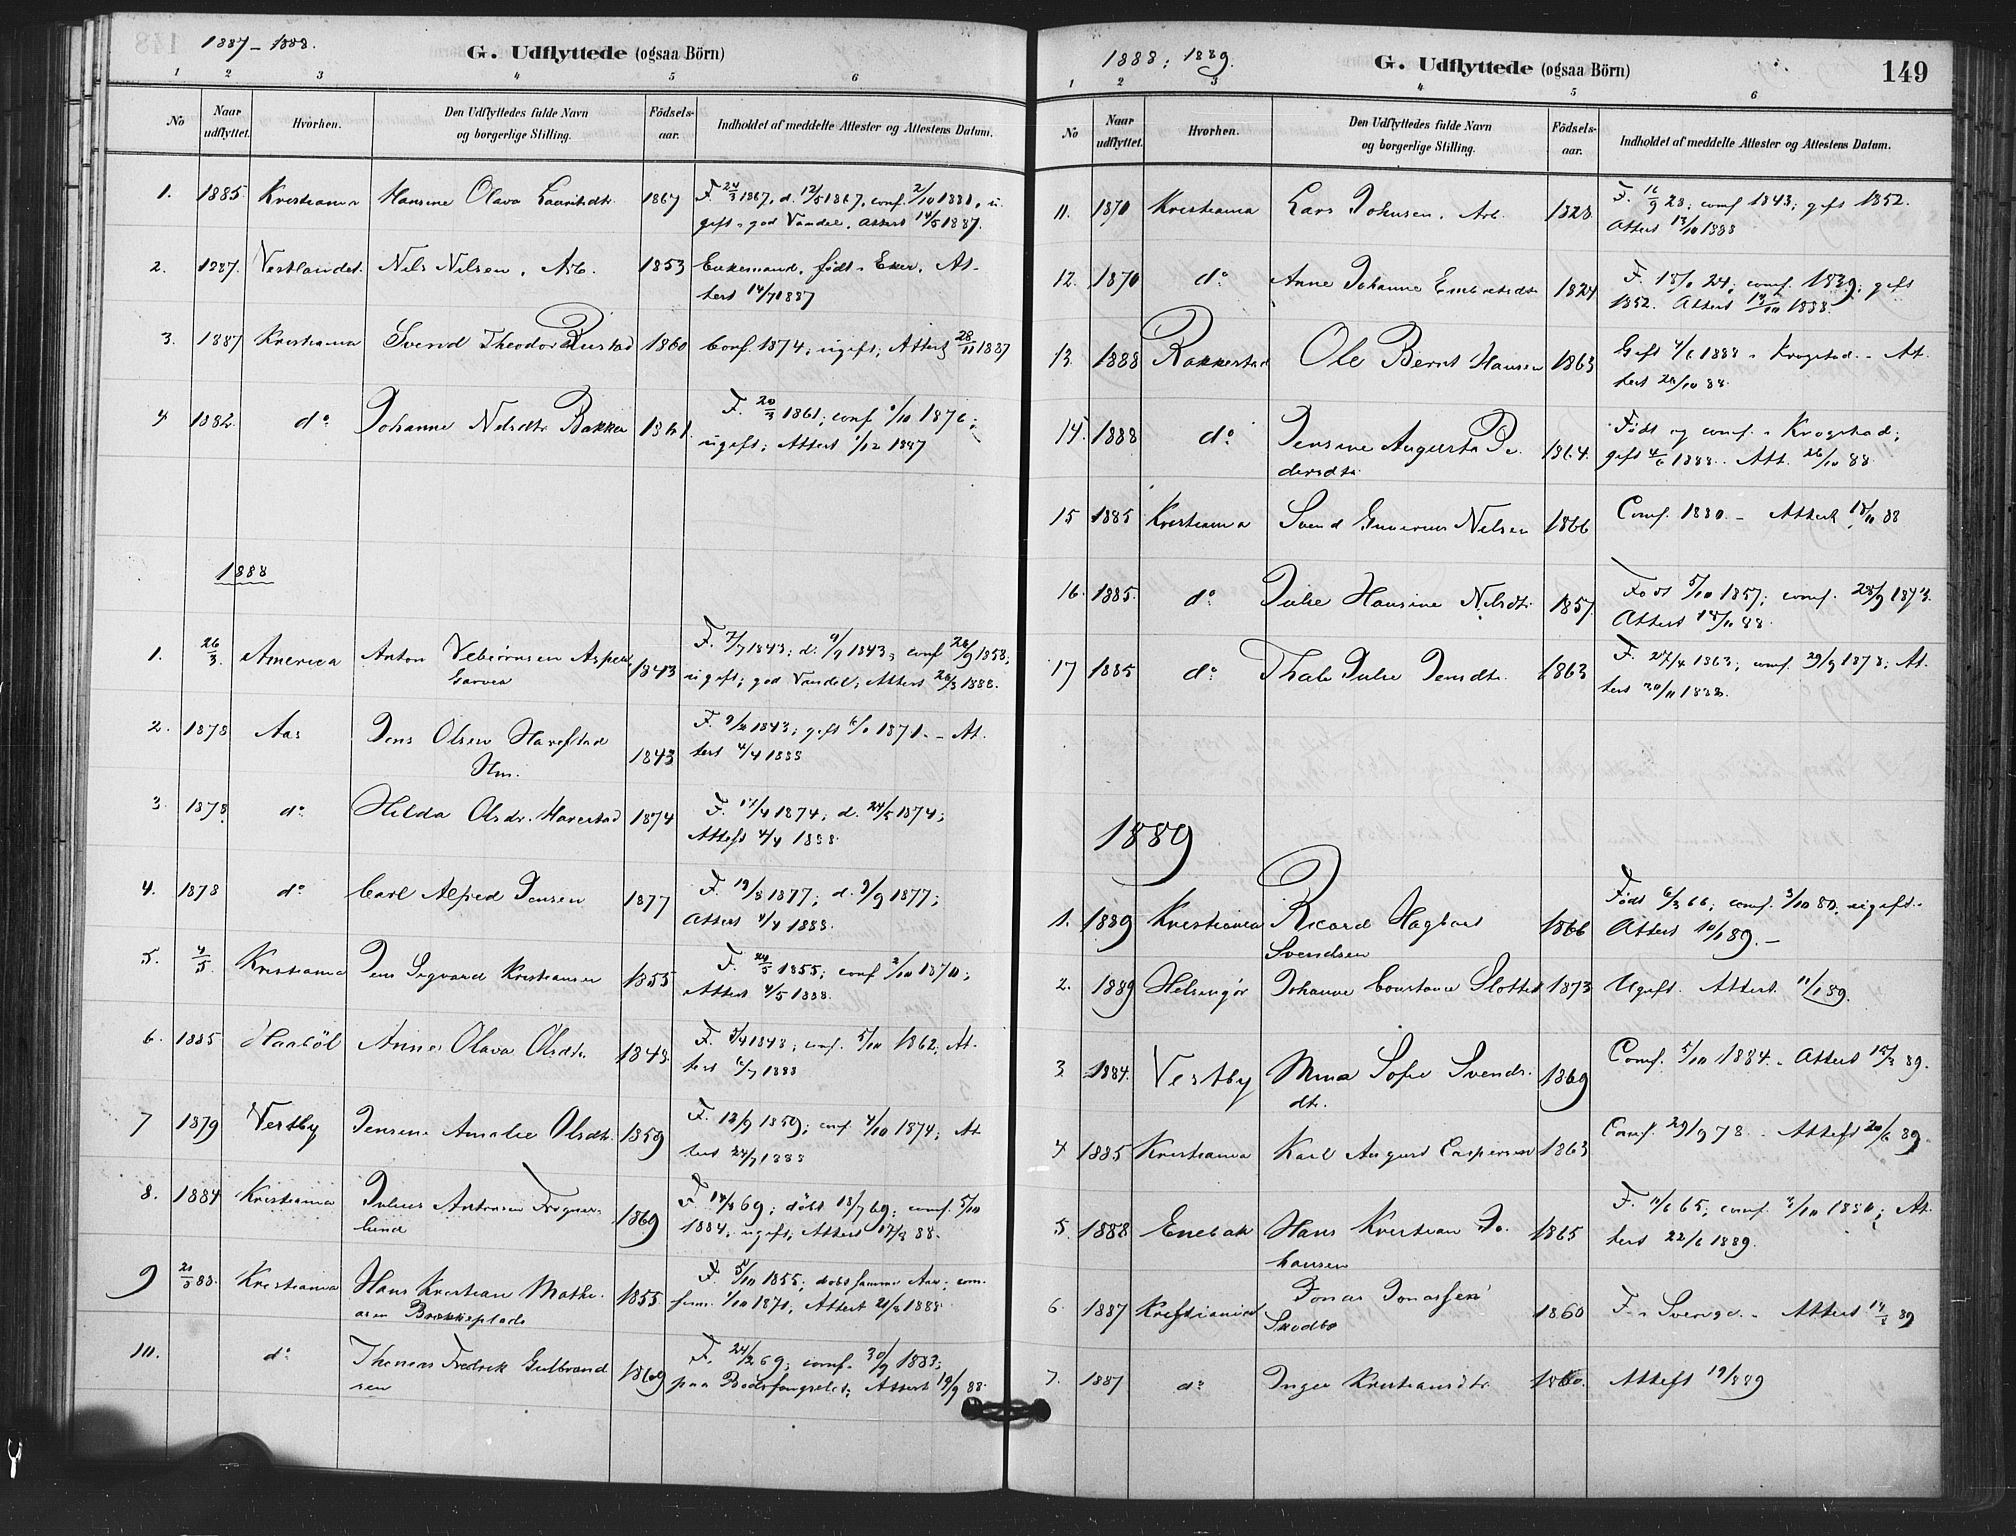 1887 - 1888.
G. Udflyttede (ogsaa Börn)
1 2 3 4 5 6
No
Naar udflyttet.
Hvorhen.
Den Udflyttedes fulde Navn og borgerlige Stilling.
Födsels-aar.
Indholdet af meddelte Attester og Attestens Datum.
1. 1885 Kristiania Hansine Olava Lauritsdtr. 1867 F. 24/3 1867, d. 12/5 1867, conf. 2/10 1881, u-
gift, god Vandel. Attest 14/5 1887.
2. 1887. Vestlandet. Nils Nilsen, Arb. 1853 Enkemand, født i Eker, At-
test 14/7 1887
3. 1887 Kristiania Svend Theodor Rustad 1860 Conf. 1874; ugift; Attest 28/11 1887
4 1882. do Johanne Nilsdtr Bakken 1861. F. 20/3 1861; conf /10 1876;
ugift; Attest 1/12 1887
1888
1. 26/3. America Anton Vebjørnsen Aspe- 1843 F. 7/7 1843; d. 9/9 1843; conf 26/9 1858;
garven
ugift; god Vandel; Attest 26/3 1888.
2. 1878 Aas Jens Olsen Haverstad 1843 F. 9/2 1843; gift 1871. - At-
Hm.
test 4/4 1888
3. 1878 do Hilda Olsdr. Haverstad 1874 F. 17/4 1874; d. 24/5 1874;
Attest 4/4 1888
4. 1878 do Carl Alfred Jensen 1877 F. 19/8 1877; d. 9/9 1877;
Attest 4/4 1888.
5. 4/5. Kristiania Jens Sigvard Kristiansen 1855 F. 24/5 1855; conf 2/10 1870;
Attest 4/5 1888.
6. 1885 Haabøl Anne Olava Olsdtr. 1848 F. 3/4 1848; conf. 5/10 1862, At-
test 6/7 1888
7 1879 Vestby Jensine Amalie Olsdtr. 1859 F. 12/9 1859; conf. 4/10 1874; At-
test 24/7 1888
8. 1884 Kristiania Julius Antonsen Frogner- 1869 F. 14/6 69; døbt 18/7 69; conf. 5/10
lund
1884, ugift; Attest 17/8 88.
9 21/8 88. Kristiania Hans Kristian Mathi- 1855 F. 5/10 1855; døbt samme Aar; con-
asen Brækkeplads
firm. 1/10 1871, Attest 21/8 1888
10. do Thomas Fredrik Gulbrand- 1869 F. 24/2 69; conf. 30/9 1883;
sen
paa Bodsfængselet; Attest 19/9 88.
1888; 1889.
G. Udflyttede (ogsaa Börn)
149
1 2 3 4 5 6
No
Naar udflyttet.
Hvorhen.
Den Udflyttedes fulde Navn og borgerlige Stilling.
Födsels-aar.
Indholdet af meddelte Attester og Attestens Datum.
11. 1870 Kristiania Lars Johnsen. Arb. 1828 F. 16/9 28; conf 1843; gift 1852.
Attest 13/10 1888
12. 1870 do Anne Johanne Embretsdtr 1824 F. 24; conf. 1839; gift
1852. Attest 13/10 1888.
13. 1888 Rakkestad Ole Bernt Hansen 1863 Gift 4/6 1888 i Krogstad. - At-
test 26/10 88.
14. 1888 do Jensine Augusta Pe- 1864. Født og conf. i Krogstad;
dersdtr.
gift 4/6 1888. Att. 26/10 88
15 1885 Kristiania Svend Gunerius Nilsen 1866 Conf. 1880. - Attest 18/11 88
16. 1885. do Julie Hansine Nilsdtr. 1857 Født 5/10 1857; conf. 28/9 1873.
Attest 18/11 88.
17 1885 do Thale Julie Jensdtr. 1863 F. 27/4 1863; conf. 29/9 1878; At-
test 30/11 1888.
1889
1. 1889 Kristiania Ricard Hagbart 1866 Født 6/3 66; conf. 3/10 80, ugift.
Svendsen
Attest 10/1 89. -
2. 1889 Helsingør Johanne Constance Slottet 1873 Ugift. Attest 11/1 89.
3. 1884. Vestby Mina Sofie Svends- 1869 Conf. 5/10 1884. - Attest 15/3 89.
dtr.
4 1885 Kristiania Karl August Caspersen 1863 Conf. 29/9 78. - Attest 20/6 89.
5. 1888 Enebak Hans Kristian Jo- 1865 F. 11/6 65; conf. 3/10 1880; At-
hansen
test 22/6 1889.
6. 1887 Kristiania Jonas Jonassen 1860 F. i Sverige. - Attest 14/8 89
Skodbo
7. 1887 do Inger Kristiansdtr. 1860. Attest 19/8 89